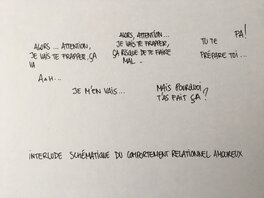 ALORS ... ATTENTION,
JE VAIS TE FRAPPER, ÇA
VA
ALORS, ATTENTION...
JE VAIS TE FRAPPER,
ÇA RISQUE DE TE FAIRE
MAL.
TU TE
PRÉPARE TOI...
PA!
AAH...
JE M'EN VAIS...
MAIS POURQUOI
T'AS FAIT ÇA?
INTERLUDE SCHÉMATIQUE DU COMPORTEMENT RELATIONNEL AMOUREUX